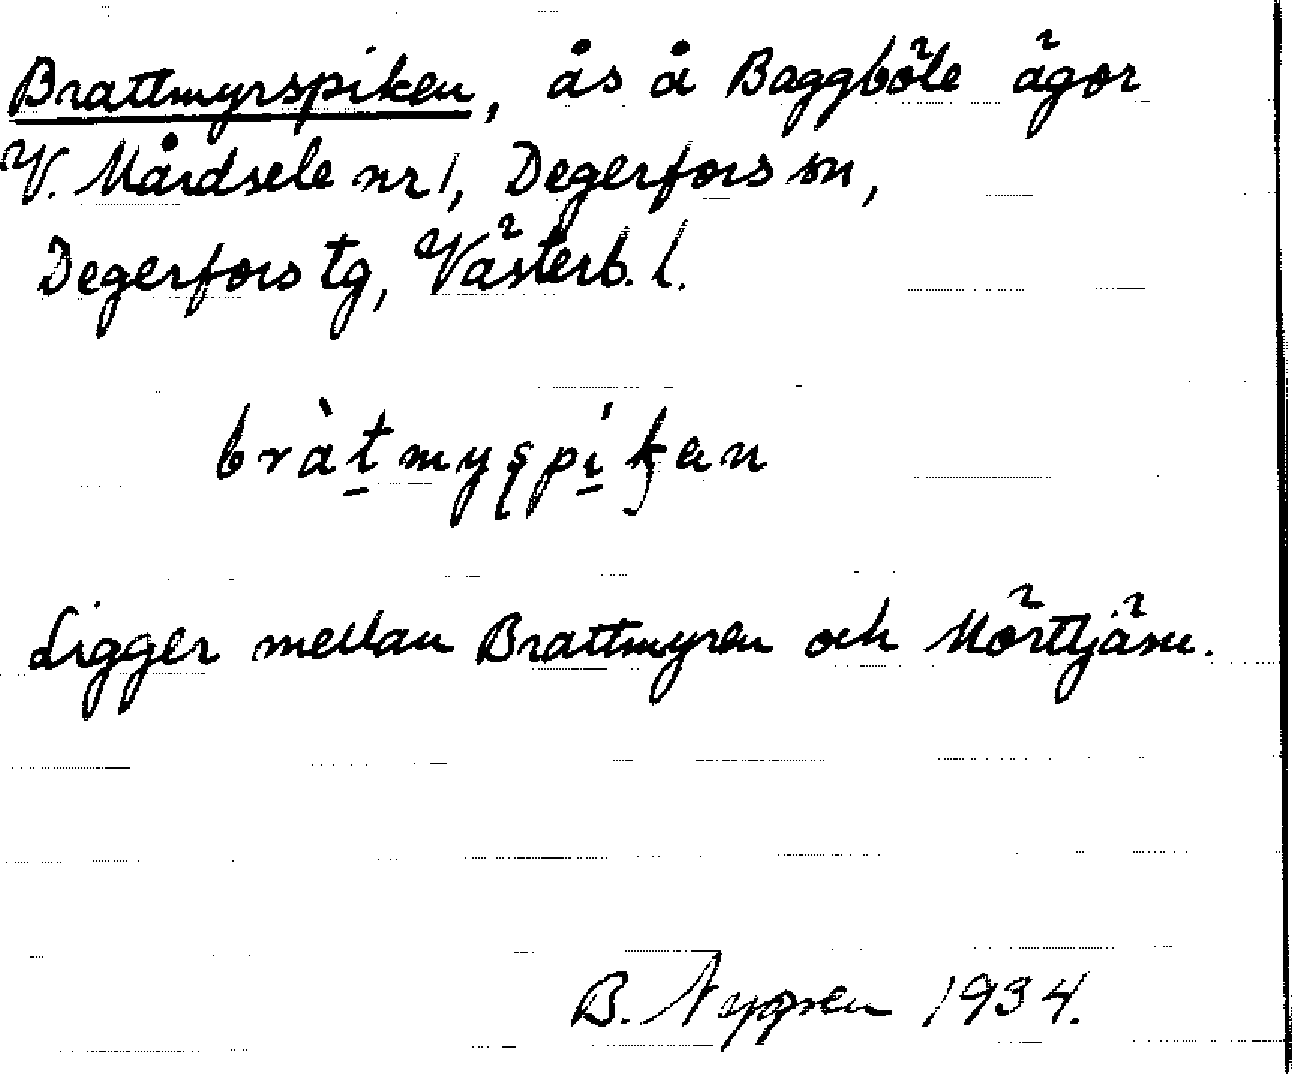 Brattmyrspiken, ås å Baggböle ägor
V. Mårdsele nr 1, Degerfors sn,
Degerfors tg, Västerb. l.
bràt̠myʂpi̠ḱan
Ligger mellan Brattmyren och Mörttjärn.
B. Nygren 1934.